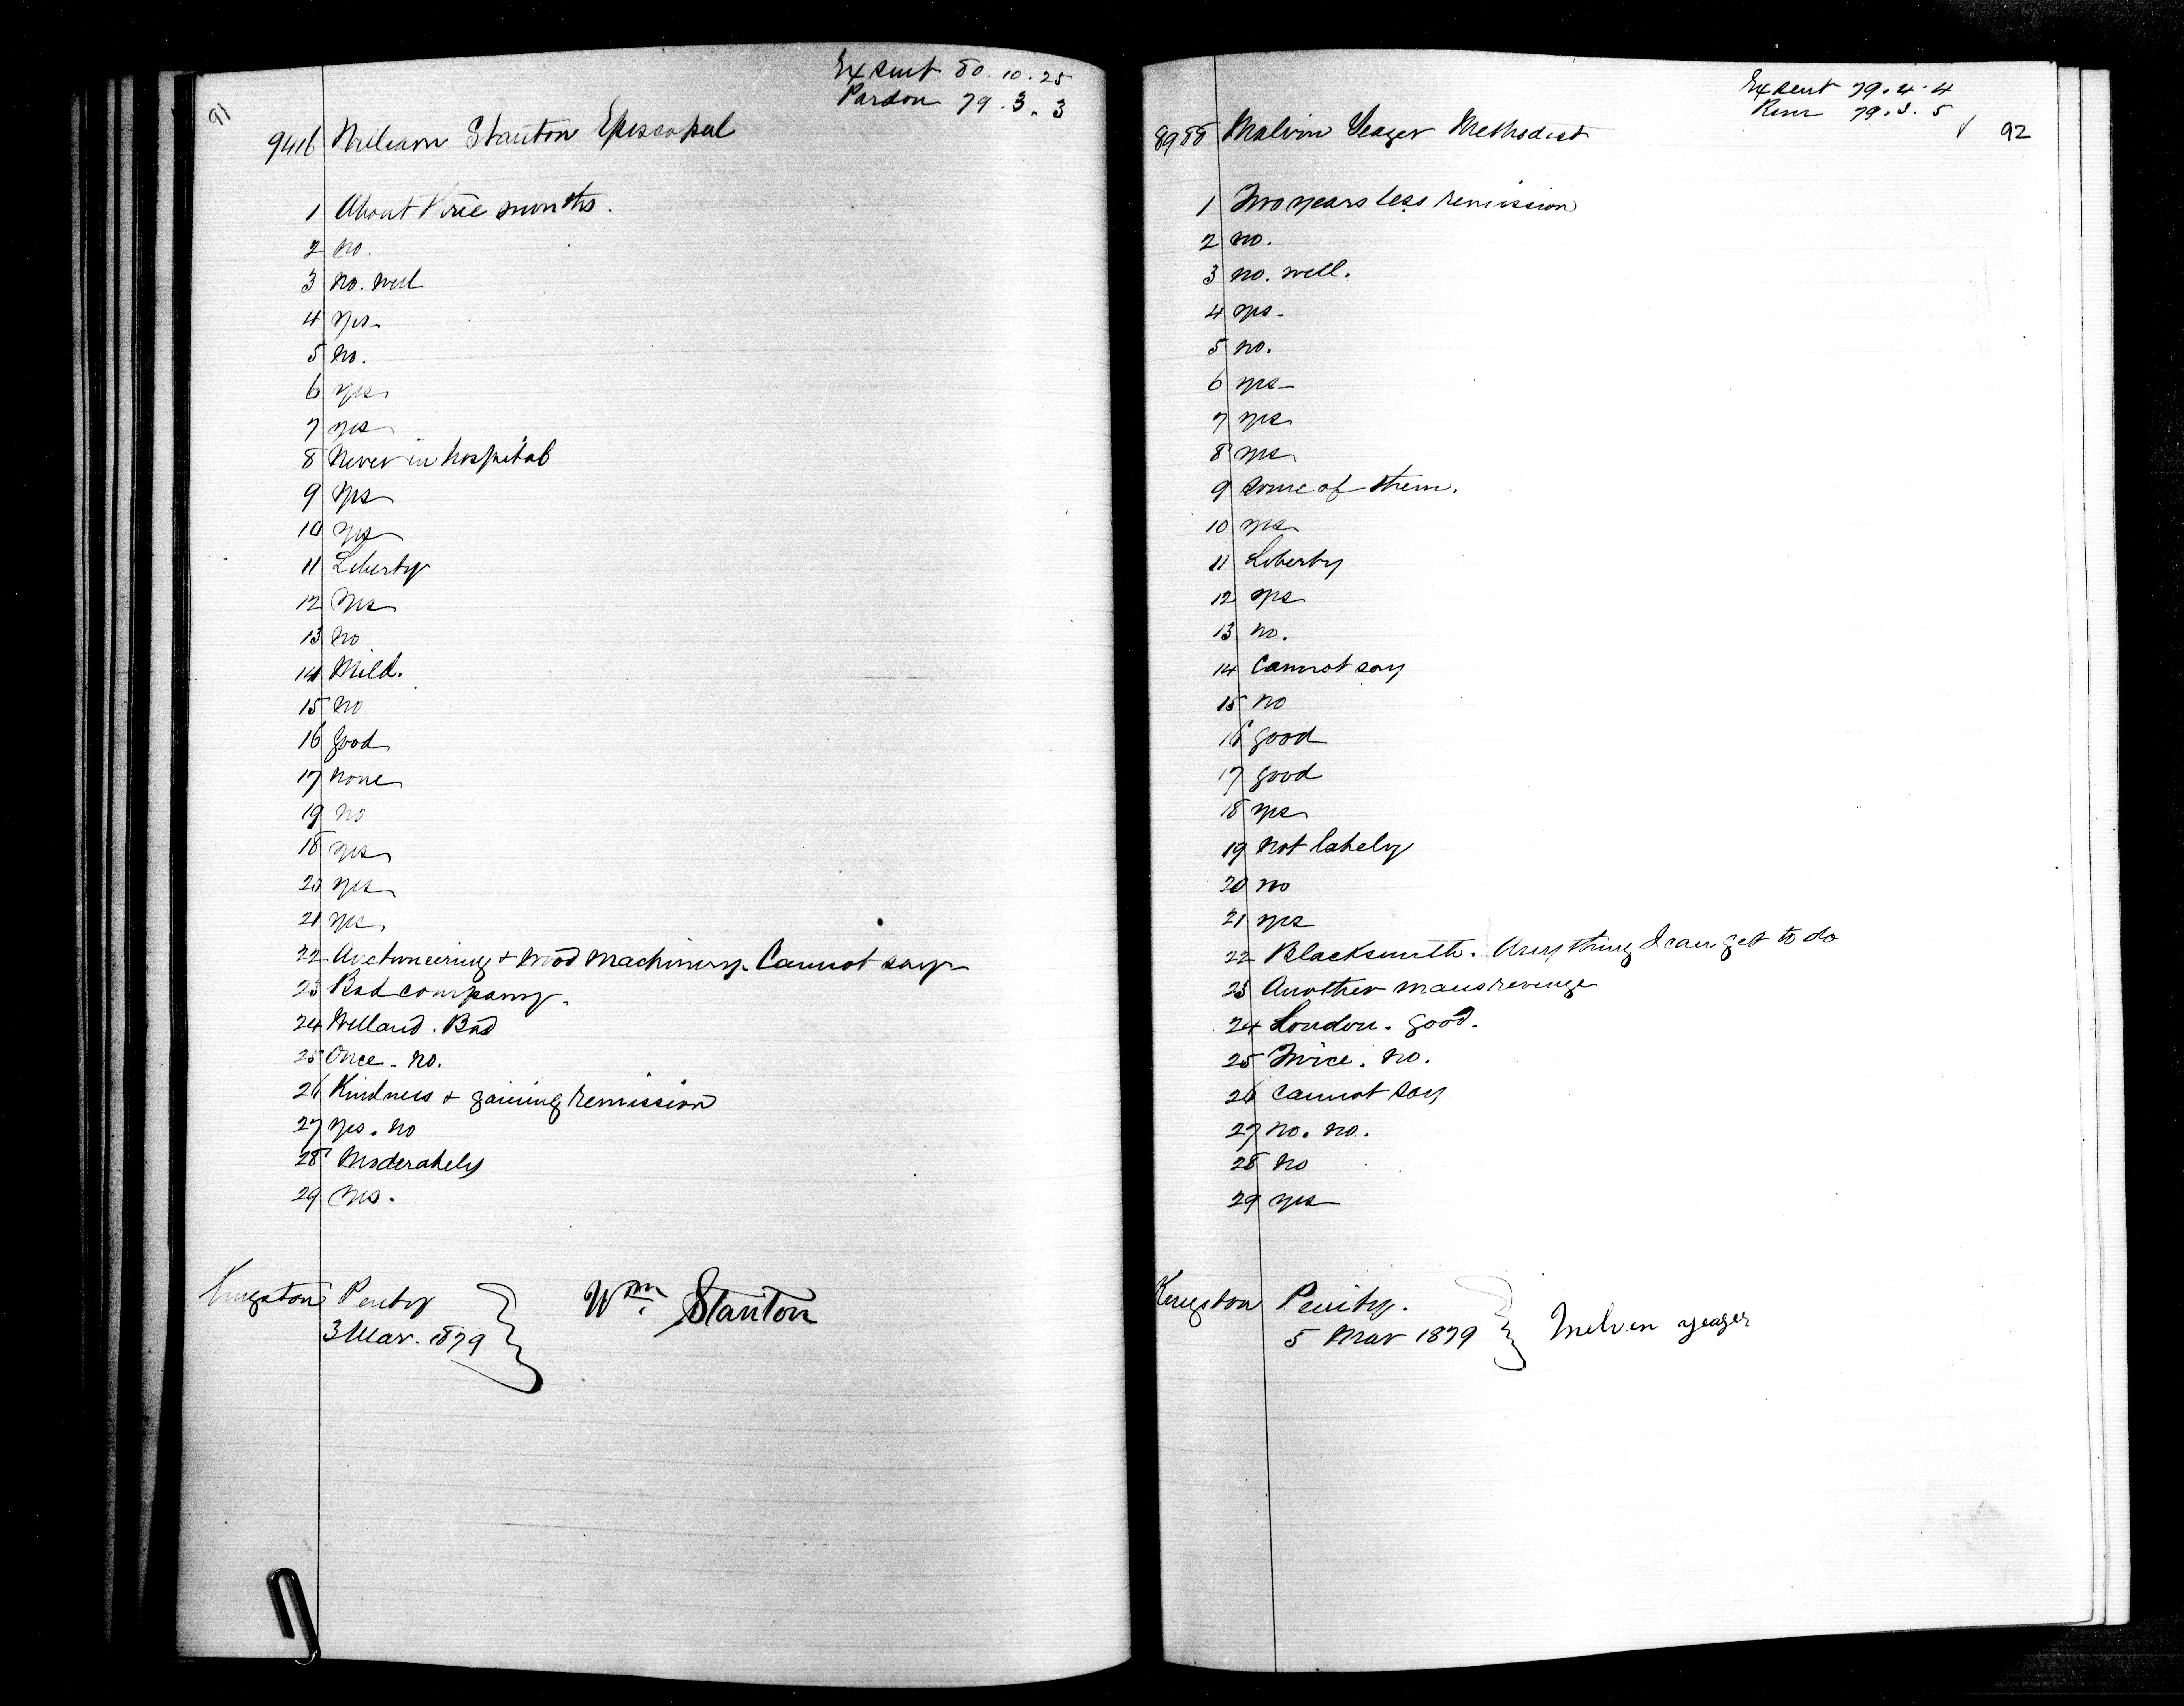 91
Ex Sent 80. 10. 25
Pardon 79. 3. 3
9416 William Stanton Episcopal
1 About three months.
2 no.
3 no. well
4 yes.
5 no.
6 yes
7 yes
8 Never in hospital
9 yes
10 yes
11 Liberty
12 Yes
13 no
14 Mild.
15 no
16 good
17 none
19 no
18 yes
20 yes
21 yes
22 Auctioneering & wood machinery. Cannot say
23 Bad company.
24 Welland. Bad
25 Once. no.
26 Kindness & gaining remission
27 yes. no
28 Moderately
29 Yes.
Kingston Penty
3 Mar. 1879
Wm. Stanton
Ex Sent 79. 4. 4
Rem 79. 3. 5
92
8988 Malvin Yeager Methodist
1 Two years less remission
2 no.
3 no. well.
4 yes.
5 no.
6 yes
7 yes
8 yes
9 Some of them.
10 yes
11 Liberty
12 yes
13 no.
14 Cannot say
15 no
16 good
17 good
18 yes
19 not lately
20 no
21 yes
22 Blacksmith. Any thing I can get to do
23 Another mans revenge
24 London. good.
25 Twice. no.
26 Cannot say
27 no. no.
28 no
29 yes
Kingston Penity.
5 Mar 1879
Melven yeager